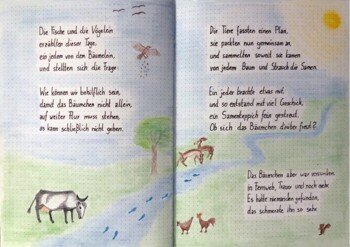 Die Fische und die Vögelein
erzählten dieser Tage,
ein jedem von dem Bäumelein,
und stellten sich die Frage:
Wie können wir behilflich sein,
damit das Bäumchen nicht allein,
auf weiter Flur muss stehen,
es kann schließlich nicht gehen.
Die Tiere fassten einen Plan,
sie packten nun gemeinsam an,
und sammelten soweit sie kamen
von jedem Baum und Strauch die Samen.
Ein jeder brachte etwas mit
und so entstand mit viel Geschick,
ein Samenteppich fein gestreut.
Ob sich das Bäumchen darüber freut?
Das Bäumchen aber war versunken
in Fernweh, Trauer und noch mehr.
Es hatte niemanden gefunden,
das schmerzte ihn so sehr.